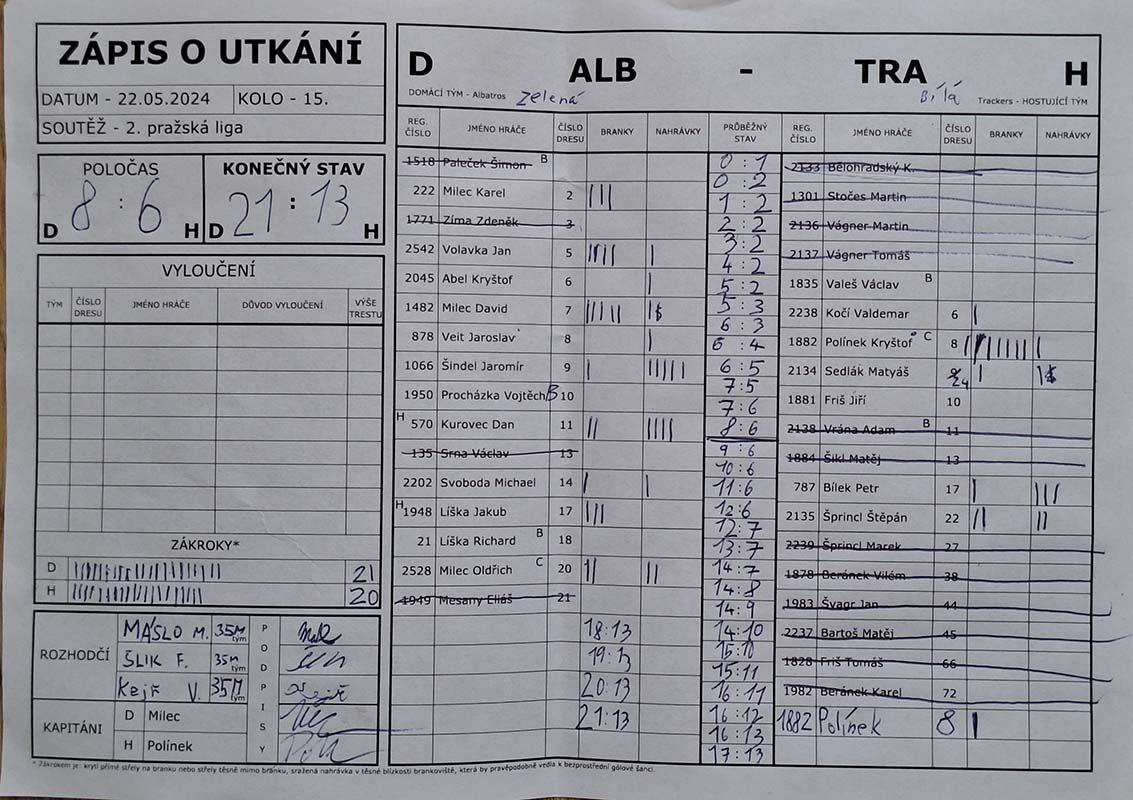 ZÁPIS O UTKÁNÍ
DATUM - 22.05.2024 KOLO - 15.
SOUTĚŽ - 2. pražská liga
POLOČAS KONEČNÝ STAV
D 8 : 6 H D 21 : 13 H
VYLOUČENÍ
TÝM ČÍSLO DRESU JMÉNO HRÁČE DŮVOD VYLOUČENÍ VÝŠE TRESTU
ZÁKROKY*
D 21
H 20
ROZHODČÍ MÁSLO M. 35M tým
ŠLIK F. 35M tým
Kejř V. 35M tým
PODPISY
KAPITÁNI D Milec
H Polínek
D ALB - TRA H
DOMÁCÍ TÝM - Albatros Zelená Bílá Trackers - HOSTUJÍCÍ TÝM
REG. ČÍSLO JMÉNO HRÁČE ČÍSLO DRESU BRANKY NAHRÁVKY PRŮBĚŽNÝ STAV REG. ČÍSLO JMÉNO HRÁČE ČÍSLO DRESU BRANKY NAHRÁVKY
1518 Paleček Šimon B
222 Milec Karel 2 |||
1771 Zíma Zdeněk 3
2542 Volavka Jan 5 |||| |
2045 Abel Kryštof 6 |
1482 Milec David 7
878 Veit Jaroslav 8 |
1066 Šindel Jaromír 9 | |||||
1950 Procházka Vojtěch B 10
H 570 Kurovec Dan 11 || ||||
135 Srna Václav 13
2202 Svoboda Michael 14 | |
H 1948 Líška Jakub 17 |||
21 Líška Richard B 18
2528 Milec Oldřich C 20 || ||
1949 Mesany Eliáš 21
18:13
19:13
20:13
21:13
0 : 1
0 : 2
1 : 2
2 : 2
3 : 2
4 : 2
5 : 2
5 : 3
6 : 3
6 : 4
6 : 5
7:5
7:6
8:6
9:6
10:6
11:6
12:6
12:7
13:7
14:7
14:8
14:9
14:10
15:10
15:11
16:11
16:12
16:13
17:13
2133 Bělohradský K.
1301 Stočes Martin
2136 Vágner Martin
2137 Vágner Tomáš
1835 Valeš Václav B
2238 Kočí Valdemar 6 |
1882 Polínek Kryštof C 8
2134 Sedlák Matyáš 24 |
1881 Friš Jiří 10
2138 Vrána Adam B 11
1884 Šikl Matěj 13
787 Bílek Petr 17 | |||
2135 Šprincl Štěpán 22 || ||
2239 Šprincl Marek 27
1878 Beránek Vilém 38
1983 Švagr Jan 44
2237 Bartoš Matěj 45
1828 Friš Tomáš 66
1982 Beránek Karel 72
1882 Polínek 8 |
* Zákrokem je: krytí přímé střely na branku nebo střely těsně mimo branku, sražená nahrávka v těsné blízkosti brankoviště, která by pravěpodobně vedla k bezprostřední gólové šanci.